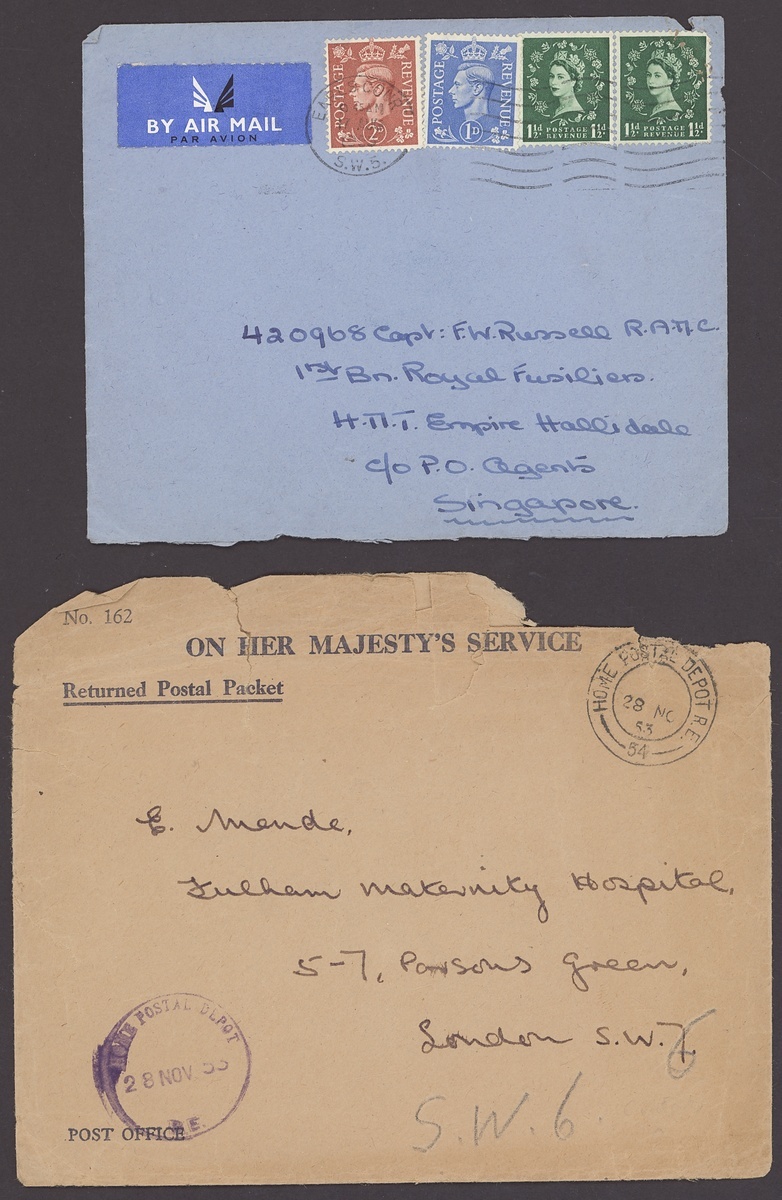 BY AIR MAIL
PAR AVION
POSTAGE REVENUE 2D
POSTAGE REVENUE 1D
1½d POSTAGE REVENUE 1½d
1½d POSTAGE REVENUE 1½d
S.W.5.
420968 Capt: F.W. Russell R.A.M.C.
1st Bn. Royal Fusiliers.
H.M.T. Empire Hallidale
c/o P.O. Agents
Singapore.
No. 162
ON HER MAJESTY'S SERVICE
Returned Postal Packet
HOME POSTAL DEPOT R.E.
28 NO
53
54
E. Mende,
Fulham Maternity Hospital,
5-7, Parsons Green,
London S.W.6
S.W.6.
HOME POSTAL DEPOT
28 NOV 53
R.E.
POST OFFICE